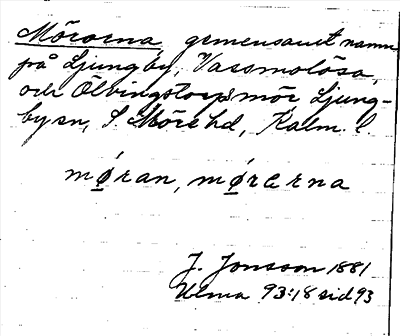 Mörorna, gemensamt namn
på Ljungby, Vassmolösa,
och Ölvingstorps mör, Ljung-
by sn, S. Möre hd, Kalm. l.
møran, mørerna
J. Jonsson 1881
Ulma 93:18 sid 93